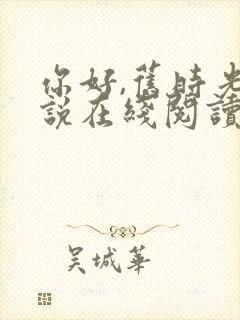 你好,舊時光
說在綫閱讀
吳城華